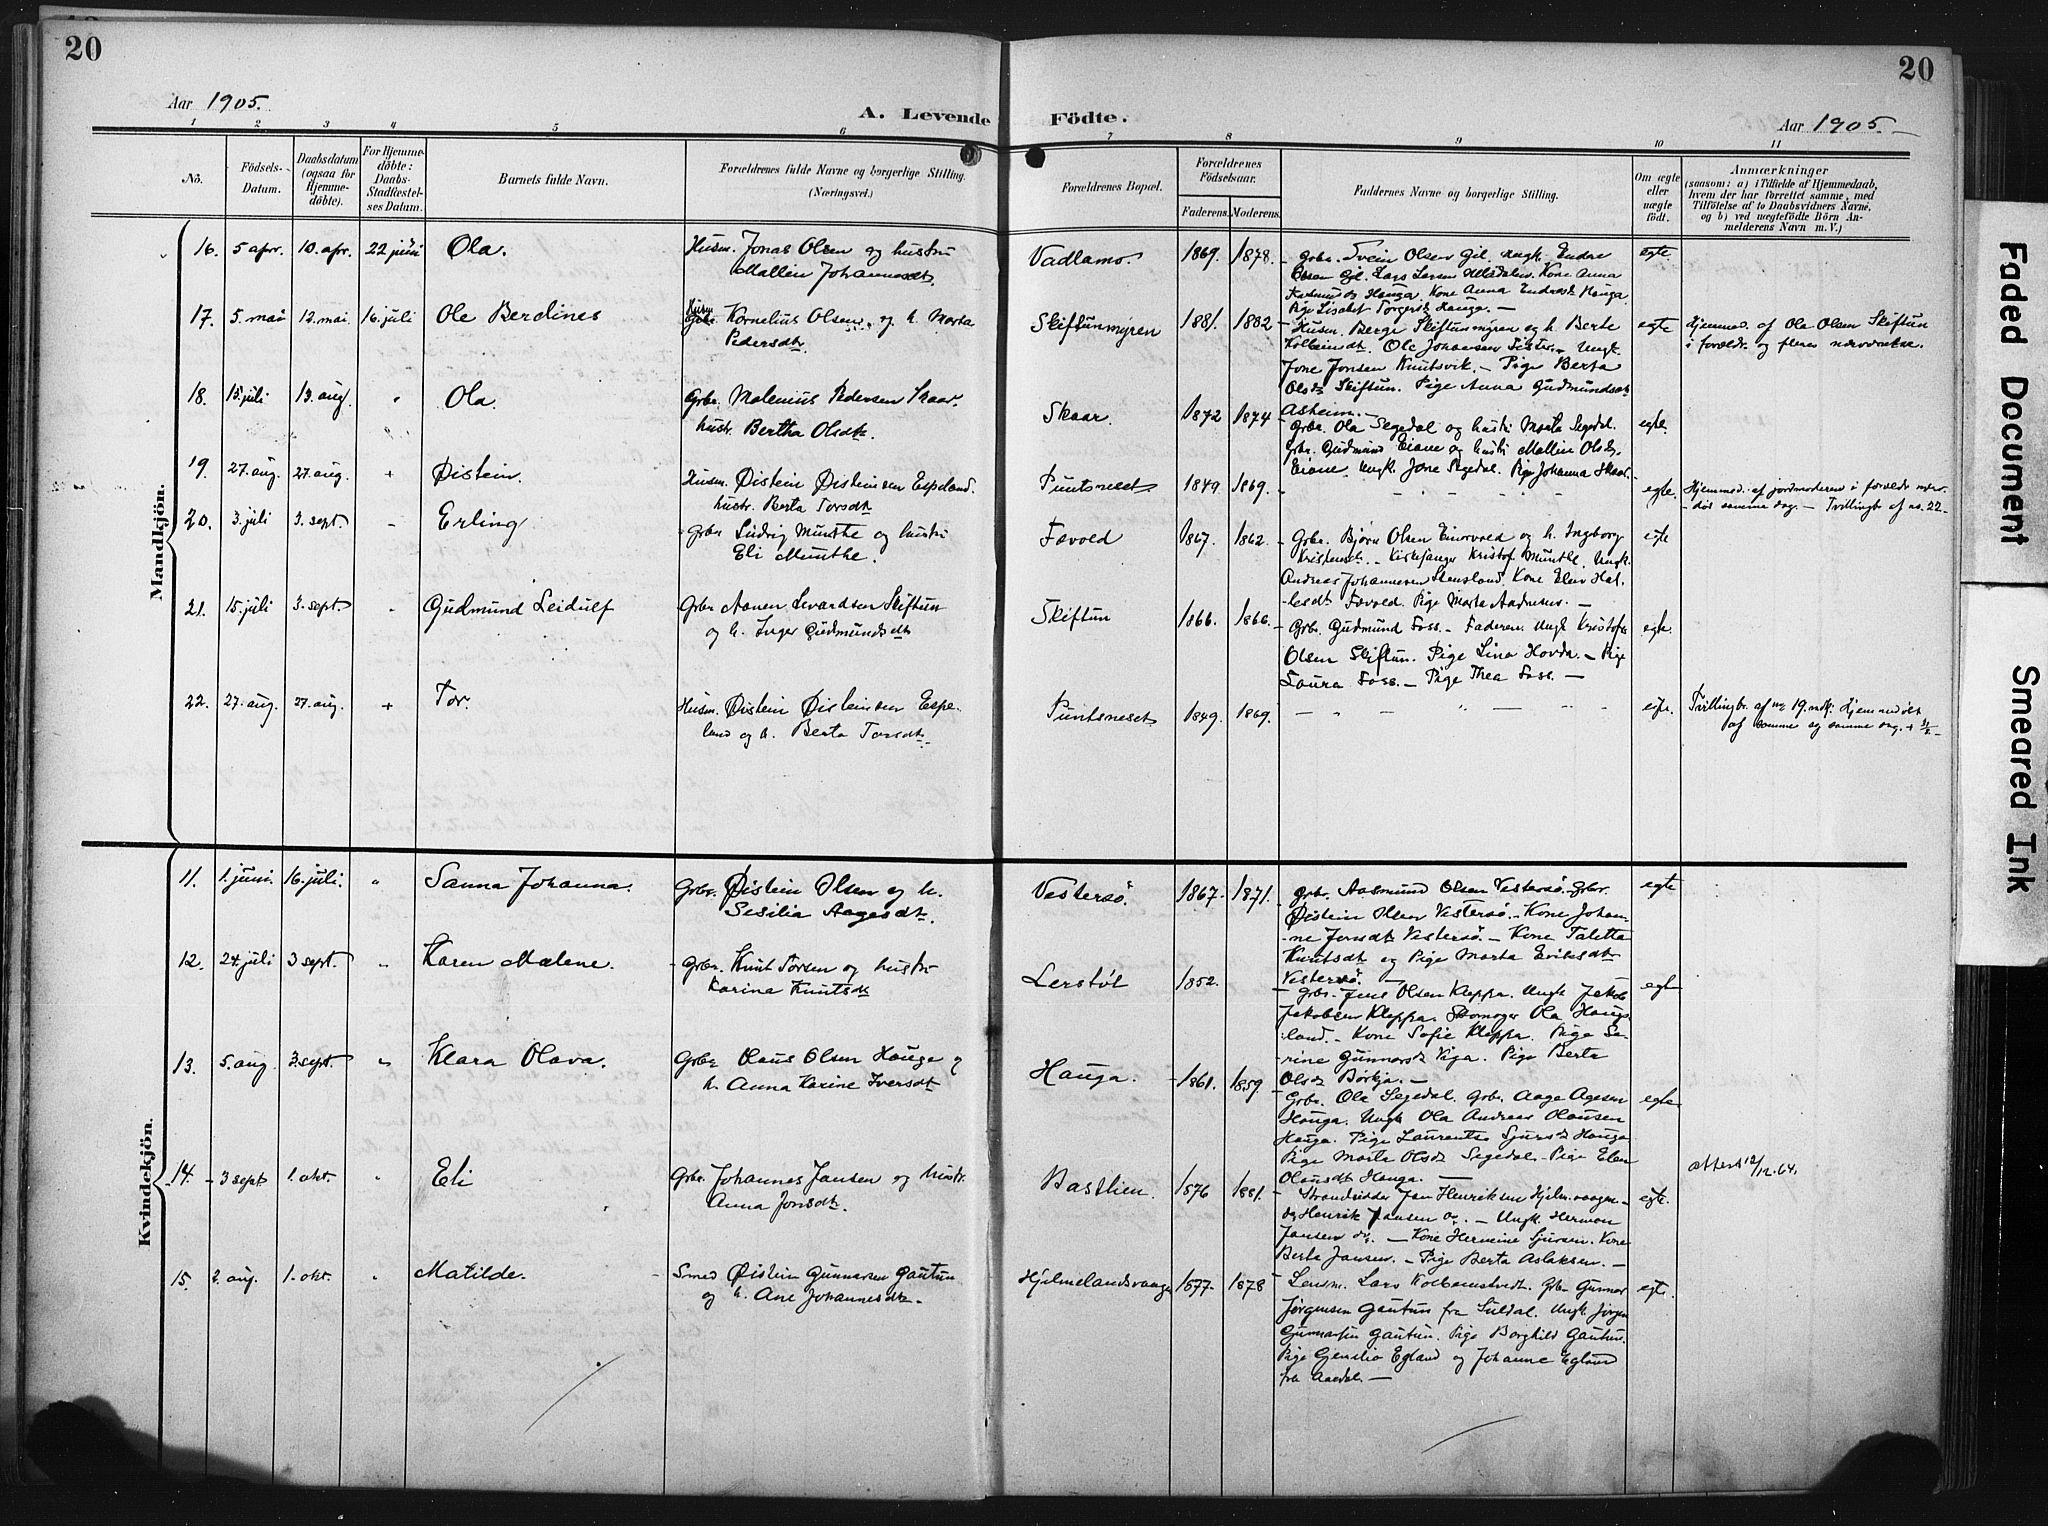 20
20
Aar 1905.
A. Levende Födte.
Aar 1905.
1 2 3 4 5 6 7 8 9 10 11
No.
Födsels-
Datum.
Daabsdatum
(ogsaa for
Hjemme-
döbte).
For Hjemme-
döbte:
Daabs-
Stadfæstel-
ses Datum.
Barnets fulde Navn.
Forældrenes fulde Navne og borgerlige Stilling.
(Næringsvei.)
Forældrenes Bopæl.
Forældrenes
Födselsaar.
Faderens. Moderens.
Faddernes Navne og borgerlige Stilling.
Om ægte
eller
uægte
født.
Anmærkninger
(saasom: a) i Tilfælde af Hjemmedaab,
hvem der har forrettet samme, med
Tilföielse af to Daabsvidners Navne,
og b) ved uægtefödte Börn An-
melderens Navn m. V.)
Mandkjön.
16. 5 apr. 10. apr. 22 juni Ola.
Husm. Jonas Olsen og hustru
Mallin Johannesdt.
Vadlamo. 1869. 1878.
Grbr. Svein Olsen Gil. Ungk. Endre
Olsen Gil. Lars Larsen Kone Anna
Hauga. Kone Anna Endresdt Hauga.
Pige Lisabet Torgersdt Hauga. —
egte.
17. 5. mai 12. mai. 16. juli Ole Berdines
Husm.
Grbr. Kornelius Olsen og h. Marta
Pedersdtr.
Skiftunmyren 1881. 1882
Husm. Berge Skiftunmyren og h. Berte
Kolbeinsdt. Ole Johansen Tister. Ungk.
Jone Jonsen Knutsvik. — Pige Berta
Olsdt Skiftun. Pige Anna Gudmundsdt
Asheim. —
egte
Hjemmed. af Ola Olsen Skiftun
i forældr. og fleres nærværelse.
18. 15. juli 13. aug. " Ola.
Grbr. Malenius Pedersen Skaar.
hustr. Bertha Olsdtr.
Skaar. 1872 1874
Grbr. Ola Segedal og hustr. Marta Segedal.
Grbr. Gudmund Eiane og hustr. Mallin Olsdt.
Eiane. Ungk. Jone Segedal. Pige Johanna Skaar.
egte.
19. 27. aug. 27. aug. + Øistein.
Husm. Øistein Øisteinsen Espeland.
hustr. Berta Torsdt.
Puntsneset 1849 1869.
egte.
Hjemmed. af jordmoderen i forældr. nær.
død samme dag. — Tvillingb. af no. 22.
20. 3. juli 3. sept. " Erling
Grbr. Ludvig Munthe og hustru
Eli Munthe.
Favold 1867. 1862.
Grbr. Bjørn Olsen og h. Ingborg
Kristensdt. — Kirkesanger Kristof Munthe. Ungk.
Andreas Johannesen Stensland. Kone Elen Hal-
lesdt Favold. Pige Marta Andresen. —
egte
21. 15. juli 3. sept. " Gudmund Leidulf
Grbr. Aanen Sevardsen Skiftun
og h. Inger Gudmundsdt
Skiftun 1866. 1866.
Grbr. Gudmund Foss. — Faderen. Ungk. Kristofer
Olsen Skiftun. Pige Lina Hovda. — Pige
Laura Foss. — Pige Thea Foss. —
egte.
22. 27. aug. 27. aug. + Tor.
Husm. Øistein Øisteinsen Espe-
land og h. Berta Torsdt.
Puntsneset 1849. 1869.
egte.
Tvillingb. af no 19. Hjemmedøbt
af samme og samme dag.
Kvindekjön.
11. 1. juni. 16. juli. " Sanna Johanna.
Grbr. Øistein Olsen og h.
Sesilia Aagesdt.
Vestersø. 1867. 1871.
Grbr. Aasmund Olsen Vestersø. Grbr.
Øistein Olsen Vestersø. — Kone Johan-
ne Jonsdt Vestersø. — Kone Taletta
Knutsdt og Pige Marta Eriksdt
Vestersø. —
egte
12. 24. juli 3 sept. " Karen Malene.
Grbr. Knut Torsen og hustru
Karina Knutsdt
Lerstøl 1852.
Grbr. Jens Olsen Kleppa. Ungk. Jakob
Jakobsen Kleppa. Skomager Ola Haugs-
land. — Kone Sofie Kleppa. Pige Se-
rine Gunnarsdt Viga. Pige Berta
Olsdt Børkja. —
egte
13. 5. aug. 3. sept. " Klara Olava.
Grbr. Olaus Olsen Hauge og
h. Anna Karine Iversdt
Hauga. 1861. 1859.
Grbr. Ola Segedal. Grbr. Aage Agesen
Hauga. Ungk. Ola Andreas Olausen
Hauga. Pige Laurentse Sjursdt Hauga
Pige Marta Olsdt Segedal. Pige Elen
Olausdt Hauga. —
egte
14. 3 sept. 1. okt. " Eli
Grbr. Johannes Jansen og hustr.
Anna Jonsdt.
Bastlien. 1876 1881.
Strandsidder Jan Henriksen Hjelm.vaagen
og Henrik Jansen do. — Ungk. Herman
Jansen do. — Kone Hermine Sjursen. Kone
Berta Jansen. — Pige Berta Aslaksen. —
egte.
Attest 12/12.64.
15. 2. aug. 1. okt. " Matilde.
Smed Øistein Gunnarsen Gautun
og h. Ane Johannesdt.
Hjelmelandsvaagen 1877. 1878
Lensm. Lars Kolbeinstveit. Grbr. Gunnar
Jørgensen Gautun fra Suldal. Ungk. Jørgen
Gunnarsen Gautun. Pige Borghild Gautun.
Pige Egland og Johanne Egland
fra
egte.
Faded Document
Smeared Ink